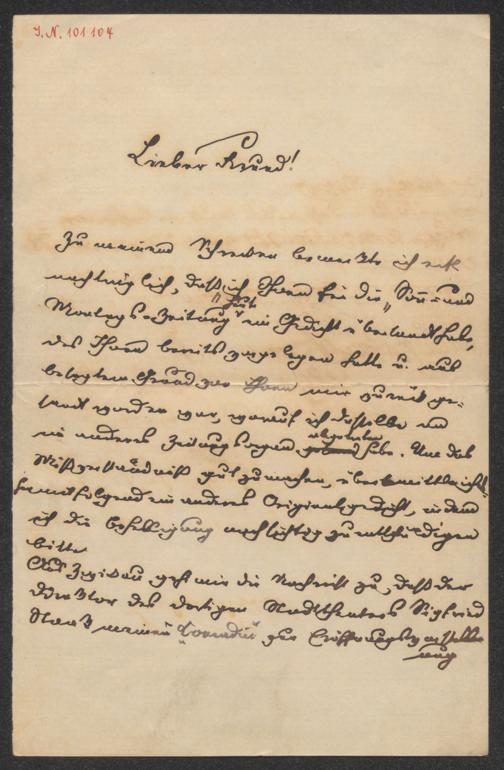 J. N. 101104
Lieber Freund!
Zu meinem Schreiben bemerkte ich erst
nachträglich, daß ich Ihnen für die „Sonn- und
Montags-Zeitung" ein Gedicht übersandt habe,
das Ihnen bereits vorgelegen hatte u. aus
Grund von Ihnen mir zurück ge-
sandt worden war, worauf ich dasselbe an
ein anderes Zeitungsorgan abgegeben habe. Um das
Mißverständniß gut zu machen, übermittle ich
hiemit folgend ein anderes Originalgedicht, indem
ich die nachsichtig zu entschuldigen
bitte.
Aus Zwickau geht mir die Nachricht zu, daß der
Direktor des dortigen Stadttheaters Siegfried
Staack meinen „Conradin" zur Eröffnungsvorstell-
ung